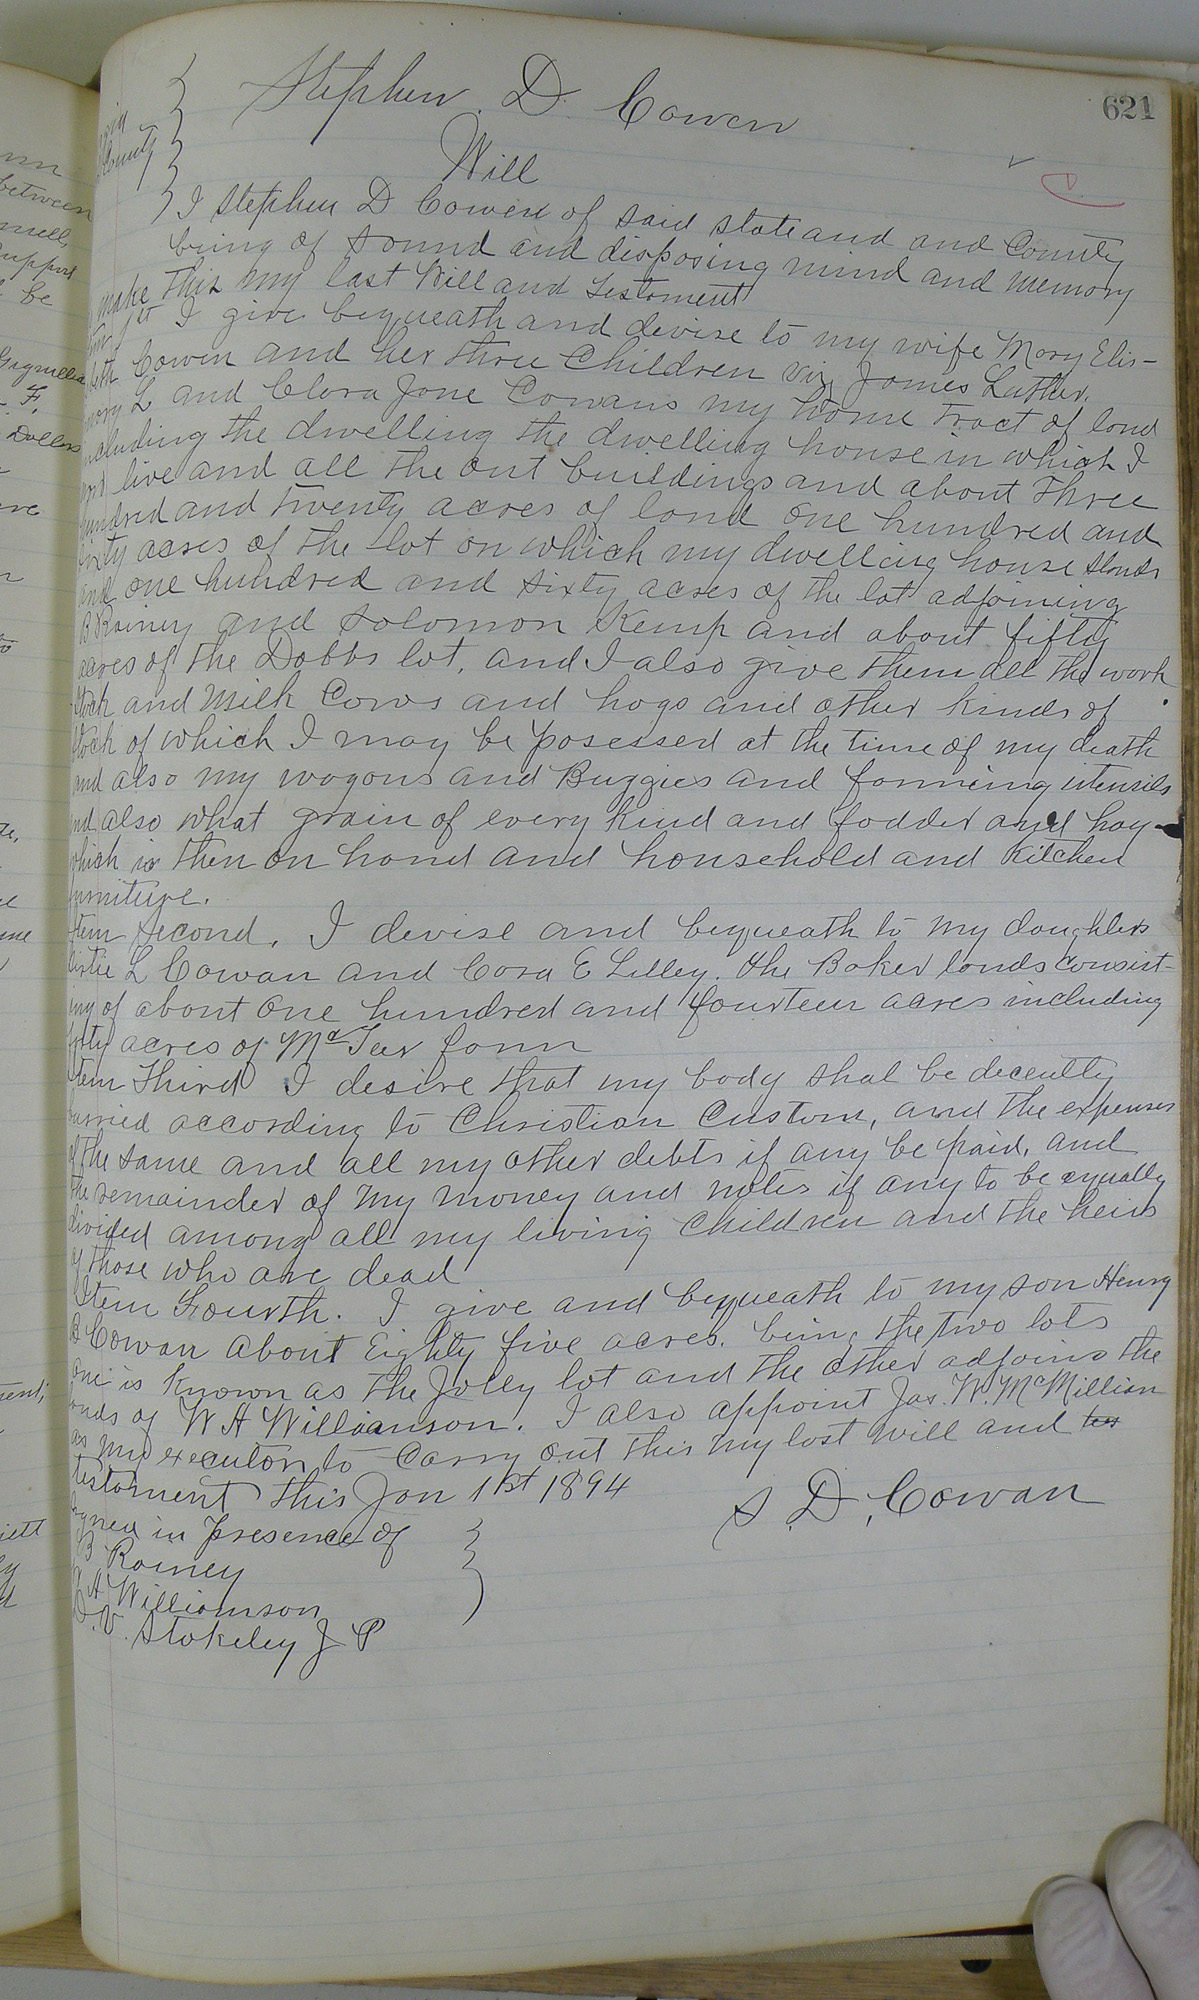 621
Stephen. D. Cowen
Will
County
I Stephen D Cowen of said state and and County
being of sound and disposing mind and memory
make this my last Will and Testament
1st I give bequeath and devise to my wife Mary Elis-
beth Cowen and her three Children viz, James Luther,
Mary L and Clora Jane Cowans my home tract of land
including the dwelling the dwelling house in which I
now live and all the out buildings and about three
hundred and twenty acres of land one hundred and
sixty acres of the lot on which my dwelling house stands
and one hundred and sixty acres of the lot adjoining
B Rainey and Solomon Kemp and about fifty
acres of the Dobbs lot, and I also give them all the work
stock and Milk Cows and hogs and other kinds of
stock of which I may be posessed at the time of my death
and also my wagons and Buggies and farming utensils
and also what grain of every kind and fodder and hay
which is then on hand and household and kitchen
furniture.
Item Second. I devise and bequeath to my daughters
L Cowan and Cora E Lilley. the Baker lands consist-
ing of about one hundred and fourteen acres including
forty acres of McTeer farm
Item Third I desire that my body shal be decently
burried according to Christian Custom, and the expenses
of the same and all my other debts if any be paid, and
the remainder of my money and notes if any to be equally
divided among all my living Children and the heirs
of those who are dead
Item Fourth. I give and bequeath to my son Henry
B Cowan about Eighty five acres. being the two lots
one is known as the Jolly lot and the other adjoins the
lands of W H Williamson. I also appoint Jas. W. McMillian
as my executor to carry out this my last will and tes
testament this Jan 1st 1894
S. D. Cowan
Signed in presence of
B. Rainey
H Williamson
D. V. Stokeley J P